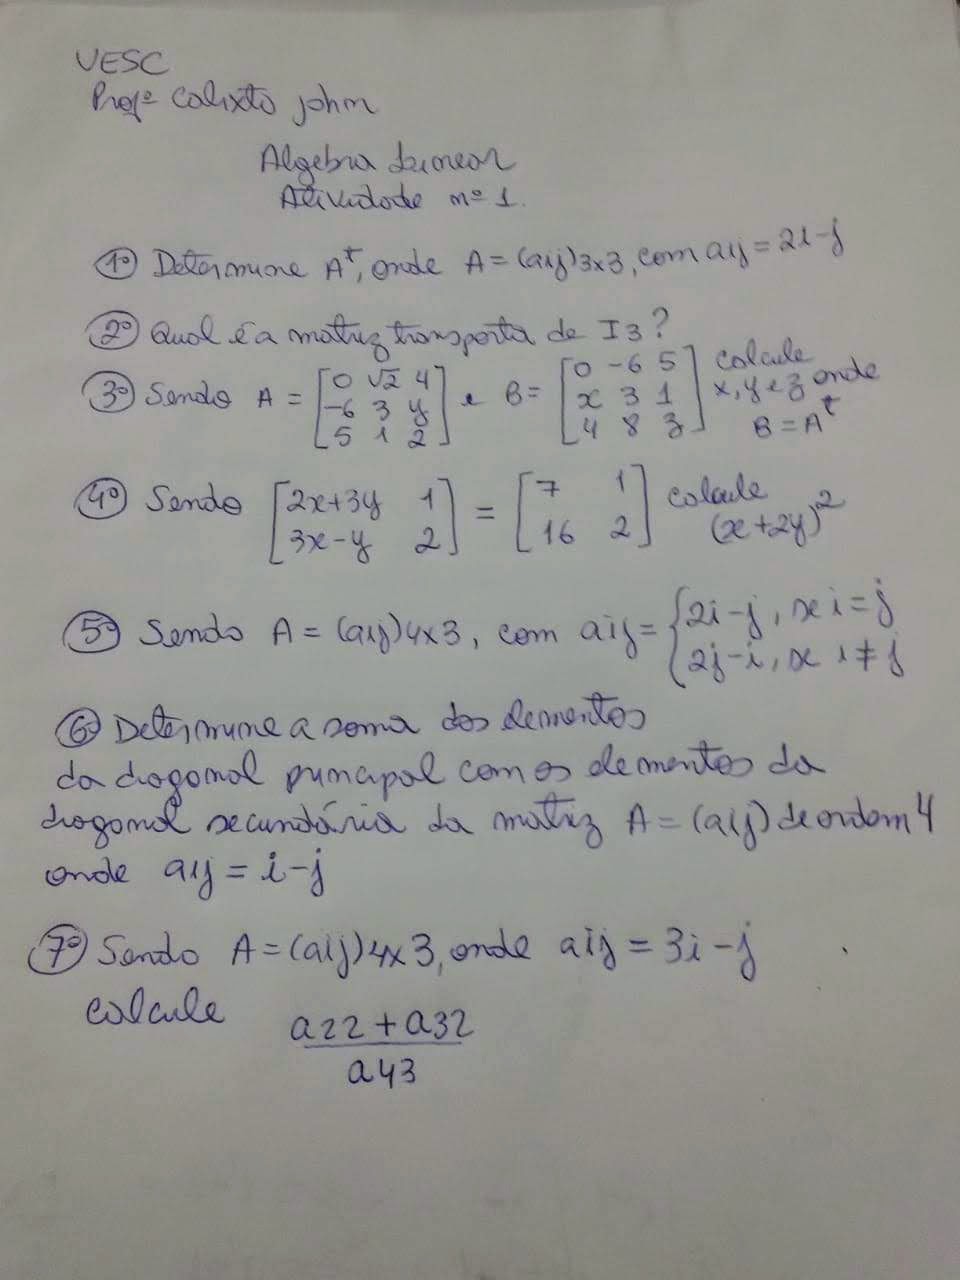 UESC
Profº Calixto john
Algebra Linear
Atividade nº 1.
1º Determine Aᵗ, onde A = (aij)3x3, com aij = 2i-j
2º Qual é a matriz transposta de I3?
3º Sendo A = [0 √2 4; -6 3 y; 5 1 2] e B = [0 -6 5; x 3 1; 4 8 z] calcule x, y e z onde B = Aᵗ
4º Sendo [2x+3y 1; 3x-y 2] = [7 1; 16 2] calcule (x+2y)²
5º Sendo A = (aij)4x3, com aij = {2i-j, se i=j
{2j-i, se i≠j
6º Determine a soma dos elementos
da diagonal principal com os elementos da
diagonal secundária da matriz A = (aij) de ordem 4
onde aij = i-j
7º Sendo A = (aij)4x3, onde aij = 3i-j
calcule
a22 + a32
a43